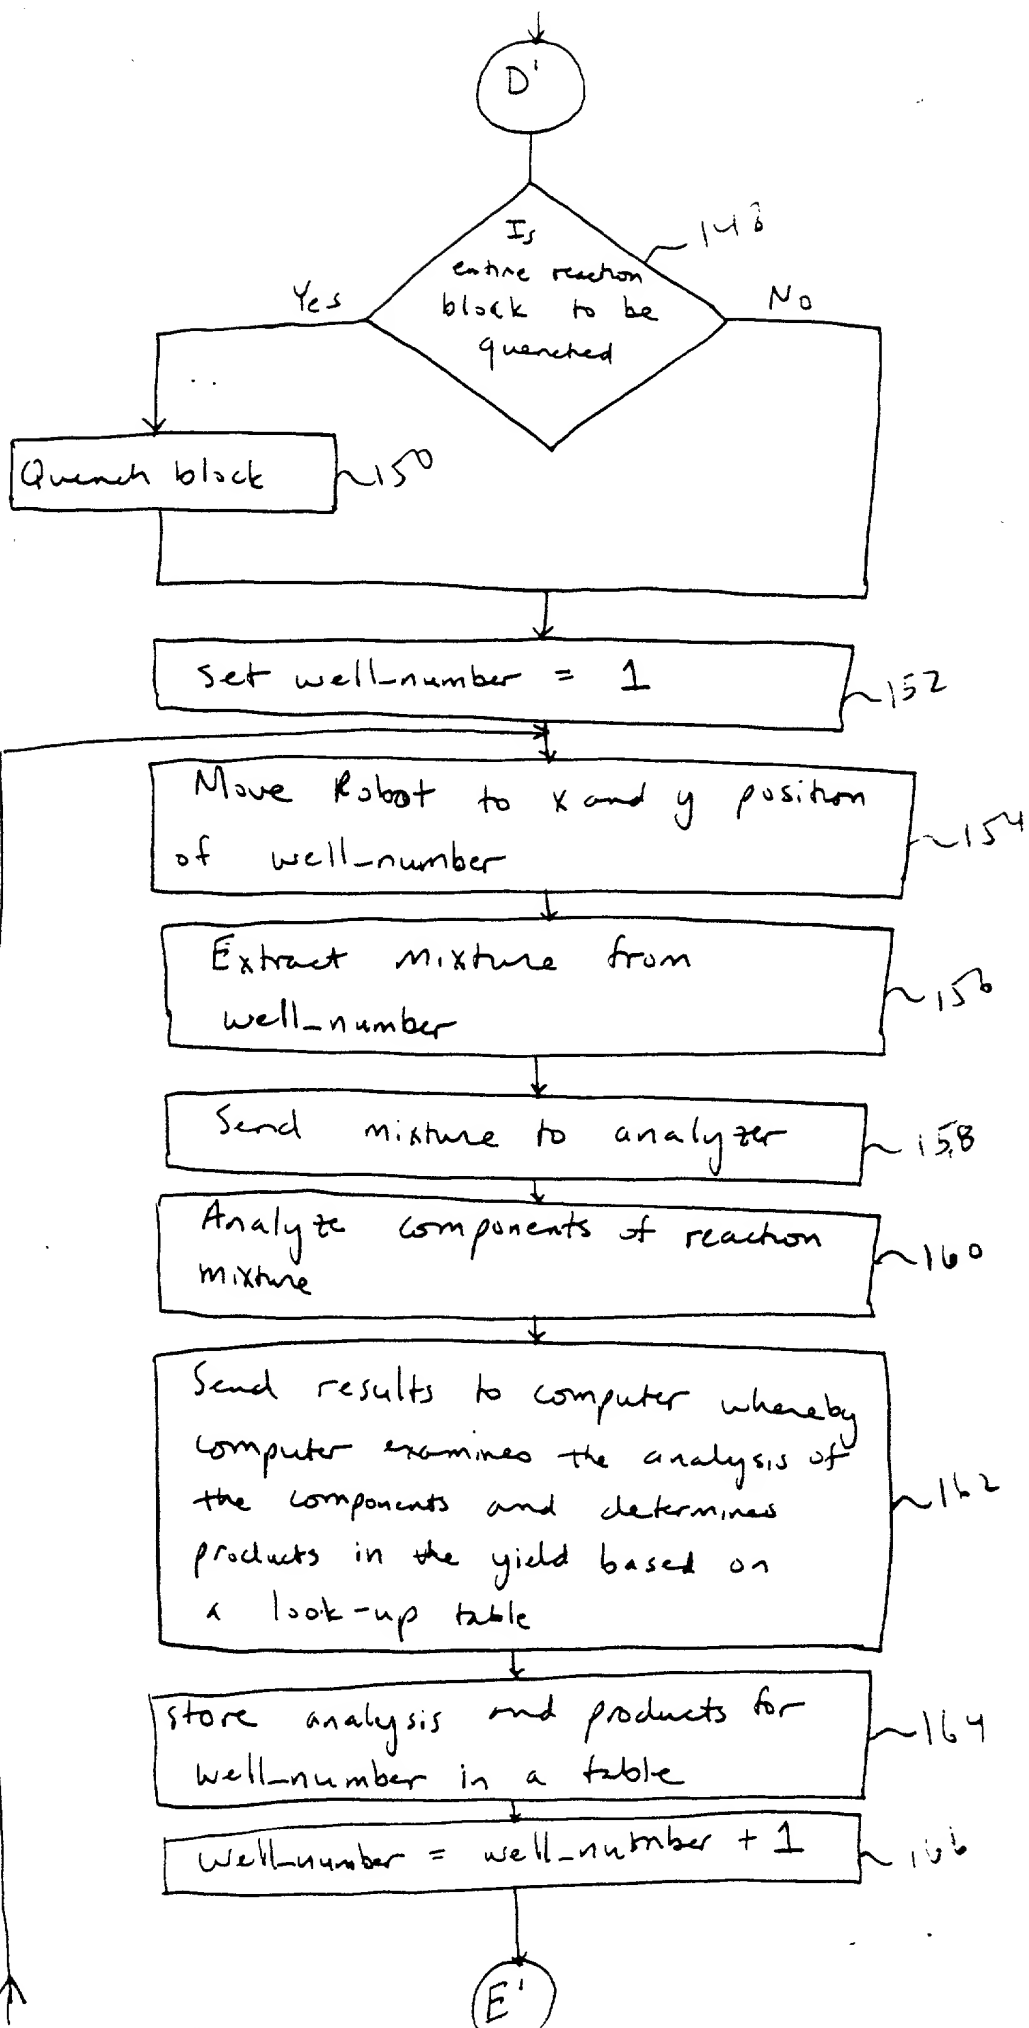 D'
Is
entire reaction
block to be
quenched
148
Yes
No
Quench block
150
set well_number = 1
152
Move Robot to x and y position
of well_number
154
Extract mixture from
well_number
156
Send mixture to analyzer
158
Analyze components of reaction
mixture
160
Send results to computer whereby
computer examines the analysis of
the components and determines
products in the yield based on
a look-up table
162
store analysis and products for
well_number in a table
164
well_number = well_number + 1
166
E'